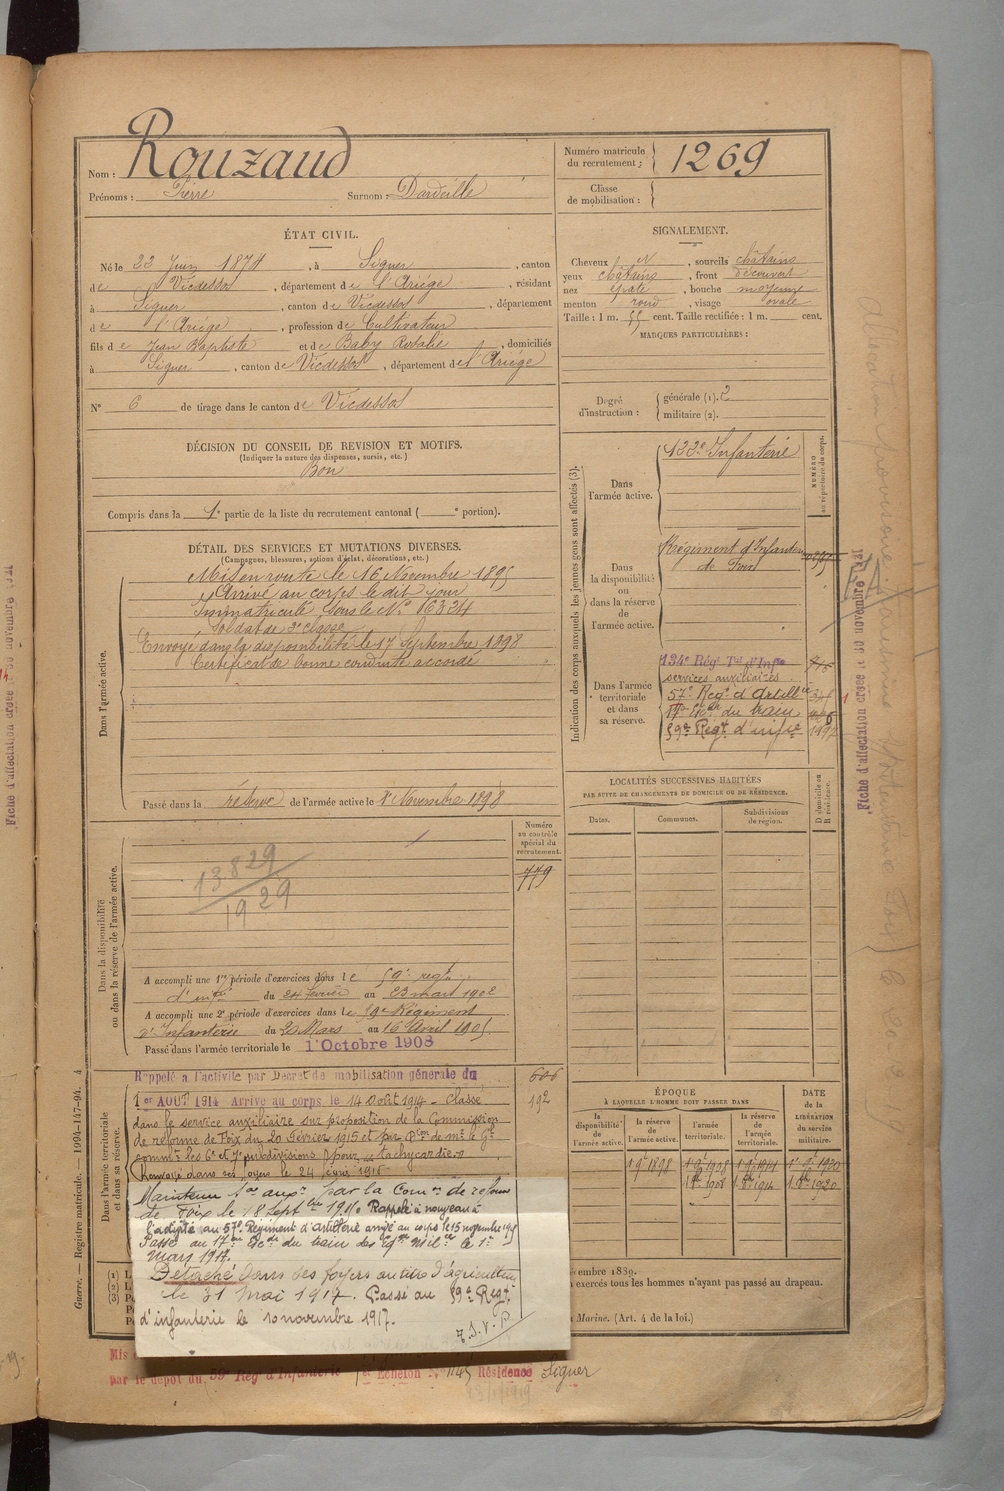 Nom : Rouzaud
Prénoms : Pierre Surnom : Dardeille
Numéro matricule du recrutement : 1269
Classe de mobilisation :
ÉTAT CIVIL.
Né le 22 Juin 1874, à Siguer, canton
de Vicdessos, département de l'Ariège, résidant
à Siguer, canton de Vicdessos, département
de l'Ariège, profession de Cultivateur
fils de Jean Baptiste et de Baby Rosalie, domiciliés
à Siguer, canton de Vicdessos, département de l'Ariège
N° 6 de tirage dans le canton de Vicdessos
SIGNALEMENT.
Cheveux N, sourcils châtains
yeux châtains, front découvert
nez épaté, bouche moyenne
menton rond, visage ovale
Taille : 1 m. 55 cent. Taille rectifiée : 1 m. cent.
MARQUES PARTICULIÈRES :
Degré d'instruction : générale (1). 2
militaire (2).
DÉCISION DU CONSEIL DE REVISION ET MOTIFS.
(Indiquer la nature des dispenses, sursis, etc.)
Bon
Compris dans la 1e partie de la liste du recrutement cantonal ( e portion).
DÉTAIL DES SERVICES ET MUTATIONS DIVERSES.
(Campagnes, blessures, actions d'éclat, décorations, etc.)
Dans l'armée active.
Mis en route le 16 Novembre 1895
Arrivé au corps le dit jour
Immatriculé sous le N° 16324
Soldat de 2e classe
Envoyé dans la disponibilité le 17 Septembre 1898
Certificat de bonne conduite accordé
Passé dans la réserve de l'armée active le 1er Novembre 1898
Indication des corps auxquels les jeunes gens sont affectés (3).
NUMÉRO au répertoire du corps.
Dans l'armée active.
122e Infanterie
Dans la disponibilité ou dans la réserve de l'armée active.
Régiment d'Infanterie
de Foix
Dans l'armée territoriale et dans sa réserve.
134e Régt Tal d'Infie
services auxiliaires
57e Regt d'Artillie
17e Eon du train
59e Regt d'infie
LOCALITÉS SUCCESSIVES HABITÉES
PAR SUITE DE CHANGEMENTS DE DOMICILE OU DE RÉSIDENCE.
D domicile ou R résidence.
Dates. Communes. Subdivisions de région.
Numéro au contrôle spécial du recrutement.
779
Dans la disponibilité ou dans la réserve de l'armée active.
13829
1929
A accompli une 1re période d'exercices dans le 59e regt
d'infie du 24 février au 23 mars 1902
A accompli une 2e période d'exercices dans le 59e Régiment
d'Infanterie du 20 Mars au 16 Avril 1905.
Passé dans l'armée territoriale le 1er Octobre 1908
Dans l'armée territoriale et dans sa réserve.
606
192
Rappelé à l'activité par Decret de mobilisation générale du
1er AOUT 1914 Arrivé au corps le 14 Août 1914 - Classé
dans le service auxiliaire sur proposition de la Commission
de réforme de Foix du 20 février 1915 et par
commt les 6e et 7e subdivisions pour "tachycardie"
Renvoyé dans ses foyers le 24 février 1915
Maintenu Sce auxre par la Comon de réforme
de Foix le 18 Septbre Rappelé à nouveau à
l'activité au 57e Régiment d'artillerie arrivé au corps le 15 novembre 1915
Passé au 17e Eon du train des Eqges Milres le 1er
Mars 1917.
Détaché dans ses foyers au titre d'agriculteur
le 31 Mai 1917. Passé au 59e Regt
d'infanterie le 10 novembre 1917.
ÉPOQUE
À LAQUELLE L'HOMME DOIT PASSER DANS
DATE de la LIBÉRATION du service militaire.
la disponibilité de l'armée active. la réserve de l'armée active. l'armée territoriale. la réserve de l'armée territoriale.
1 9e 1898 1 9e 1908 1 9e 1914 1er 9e 1920
1908 1914 1920
embre 1889.
exercés tous les hommes n'ayant pas passé au drapeau.
Marine. (Art. 4 de la loi.)
par le dépôt du 59e Rég d'Infanterie Echelon Résidence Siguer
Guerre. — Registre matricule. — 1994-147-94. 4
Fiche d'affectation créée le 30 novembre